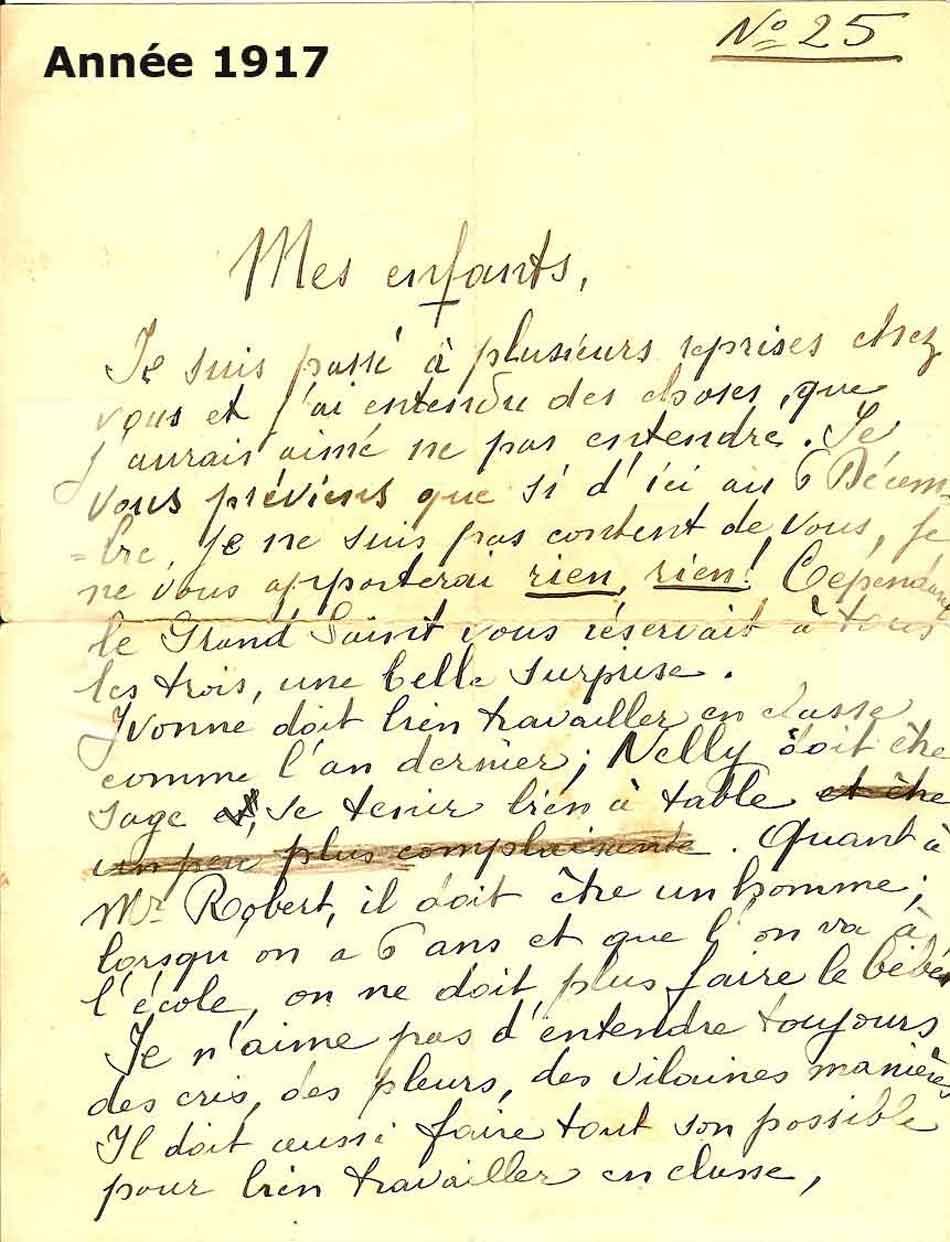 Année 1917
No 25
Mes enfants,
Je suis passé à plusieurs reprises chez
vous et j'ai entendu des choses, que
j'aurais aimé ne pas entendre. Je
vous préviens que si d'ici au 6 Décem-
=bre, je ne suis pas content de vous, je
ne vous apporterai rien, rien! Cependant
le Grand Saint vous réservait à tous
les trois, une belle surprise.
Yvonne doit bien travailler en classe
comme l'an dernier; Nelly doit être
sage et, se tenir bien à table et être
un peu plus complaisante. Quant à
Mr. Robert, il doit être un homme;
lorsqu'on a 6 ans et que l'on va à
l'école, on ne doit plus faire le bébé
Je n'aime pas d'entendre toujours
des cris, des pleurs, des vilaines manières
Il doit aussi faire tout son possible
pour bien travailler en classe,